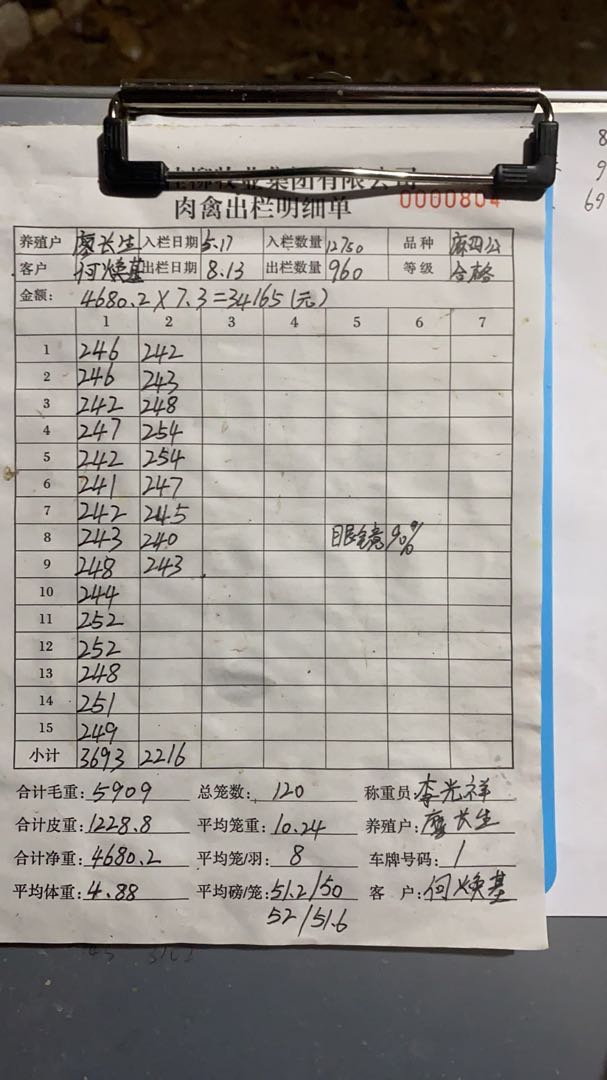 牧业集团有限公司
肉禽出栏明细单 0000804
养殖户 廖长生 入栏日期 5.17 入栏数量 12750 品种 麻四公
客户 何焕基 出栏日期 8.13 出栏数量 960 等级 合格
金额: 4680.2×7.3=34165(元)
1 2 3 4 5 6 7
1 246 242
2 246 243
3 242 248
4 247 254
5 242 254
6 241 247
7 242 245
8 243 240 眼镜90%
9 248 243
10 244
11 252
12 252
13 248
14 251
15 249
小计 3693 2216
合计毛重: 5909 总笼数: 120 称重员: 李光祥
合计皮重: 1228.8 平均笼重: 10.24 养殖户: 廖长生
合计净重: 4680.2 平均笼/羽: 8 车牌号码: /
平均体重: 4.88 平均磅/笼: 51.2/50 客 户: 何焕基
52/51.6
8
9
69